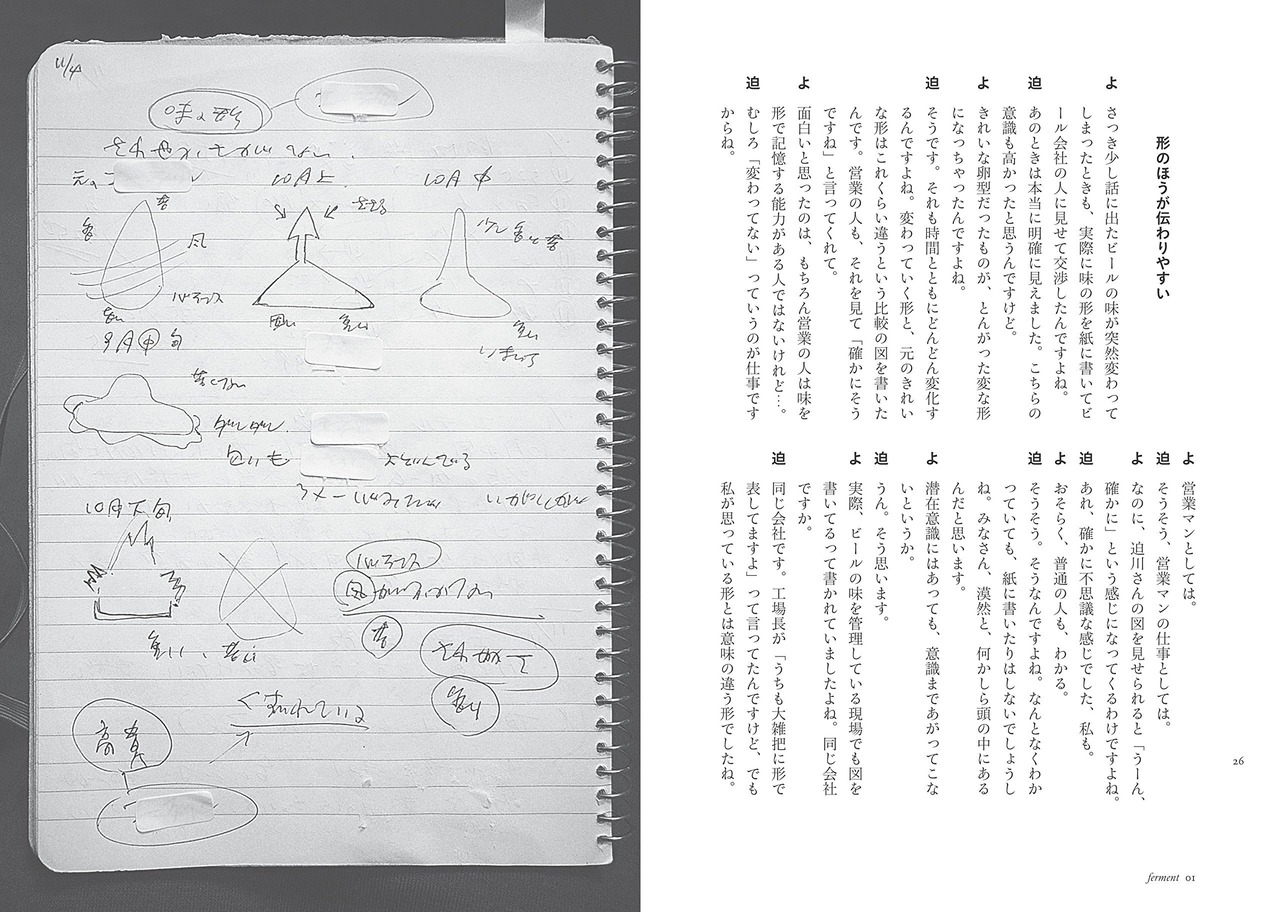 形のほうが伝わりやすい
よ さっき少し話に出たビールの味が突然変わって
しまったときも、実際に味の形を紙に書いてビ
ール会社の人に見せて交渉したんですよね。
迫 あのときは本当に明確に見えました。こちらの
意識も高かったと思うんですけど。
よ きれいな卵型だったものが、とんがった変な形
になっちゃったんですよね。
迫 そうです。それも時間とともにどんどん変化す
るんですよね。変わっていく形と、元のきれい
な形はこれくらい違うという比較の図を書いた
んです。営業の人も、それを見て「確かにそう
ですね」と言ってくれて。
よ 面白いと思ったのは、もちろん営業の人は味を
形で記憶する能力がある人ではないけれど…。
迫 むしろ「変わってない」っていうのが仕事です
からね。
よ 営業マンとしては。
迫 そうそう、営業マンの仕事としては。
よ なのに、迫川さんの図を見せられると「うーん、
確かに」という感じになってくるわけですよね。
迫 あれ、確かに不思議な感じでした、私も。
よ おそらく、普通の人も、わかる。
迫 そうそう。そうなんですよね。なんとなくわか
っていても、紙に書いたりはしないでしょうし
ね。みなさん、漠然と、何かしら頭の中にある
んだと思います。
よ 潜在意識にはあっても、意識まであがってこな
いというか。
迫 うん。そう思います。
よ 実際、ビールの味を管理している現場でも図を
書いてるって書かれていましたよね。同じ会社
ですか。
迫 同じ会社です。工場長が「うちも大雑把に形で
表してますよ」って言ってたんですけど、でも
私が思っている形とは意味の違う形でしたね。
26
ferment 01
11/4
味の形
10月上
10月中
苦
風
バランス
9月中旬
匂いも
10月下旬
バランス
苦